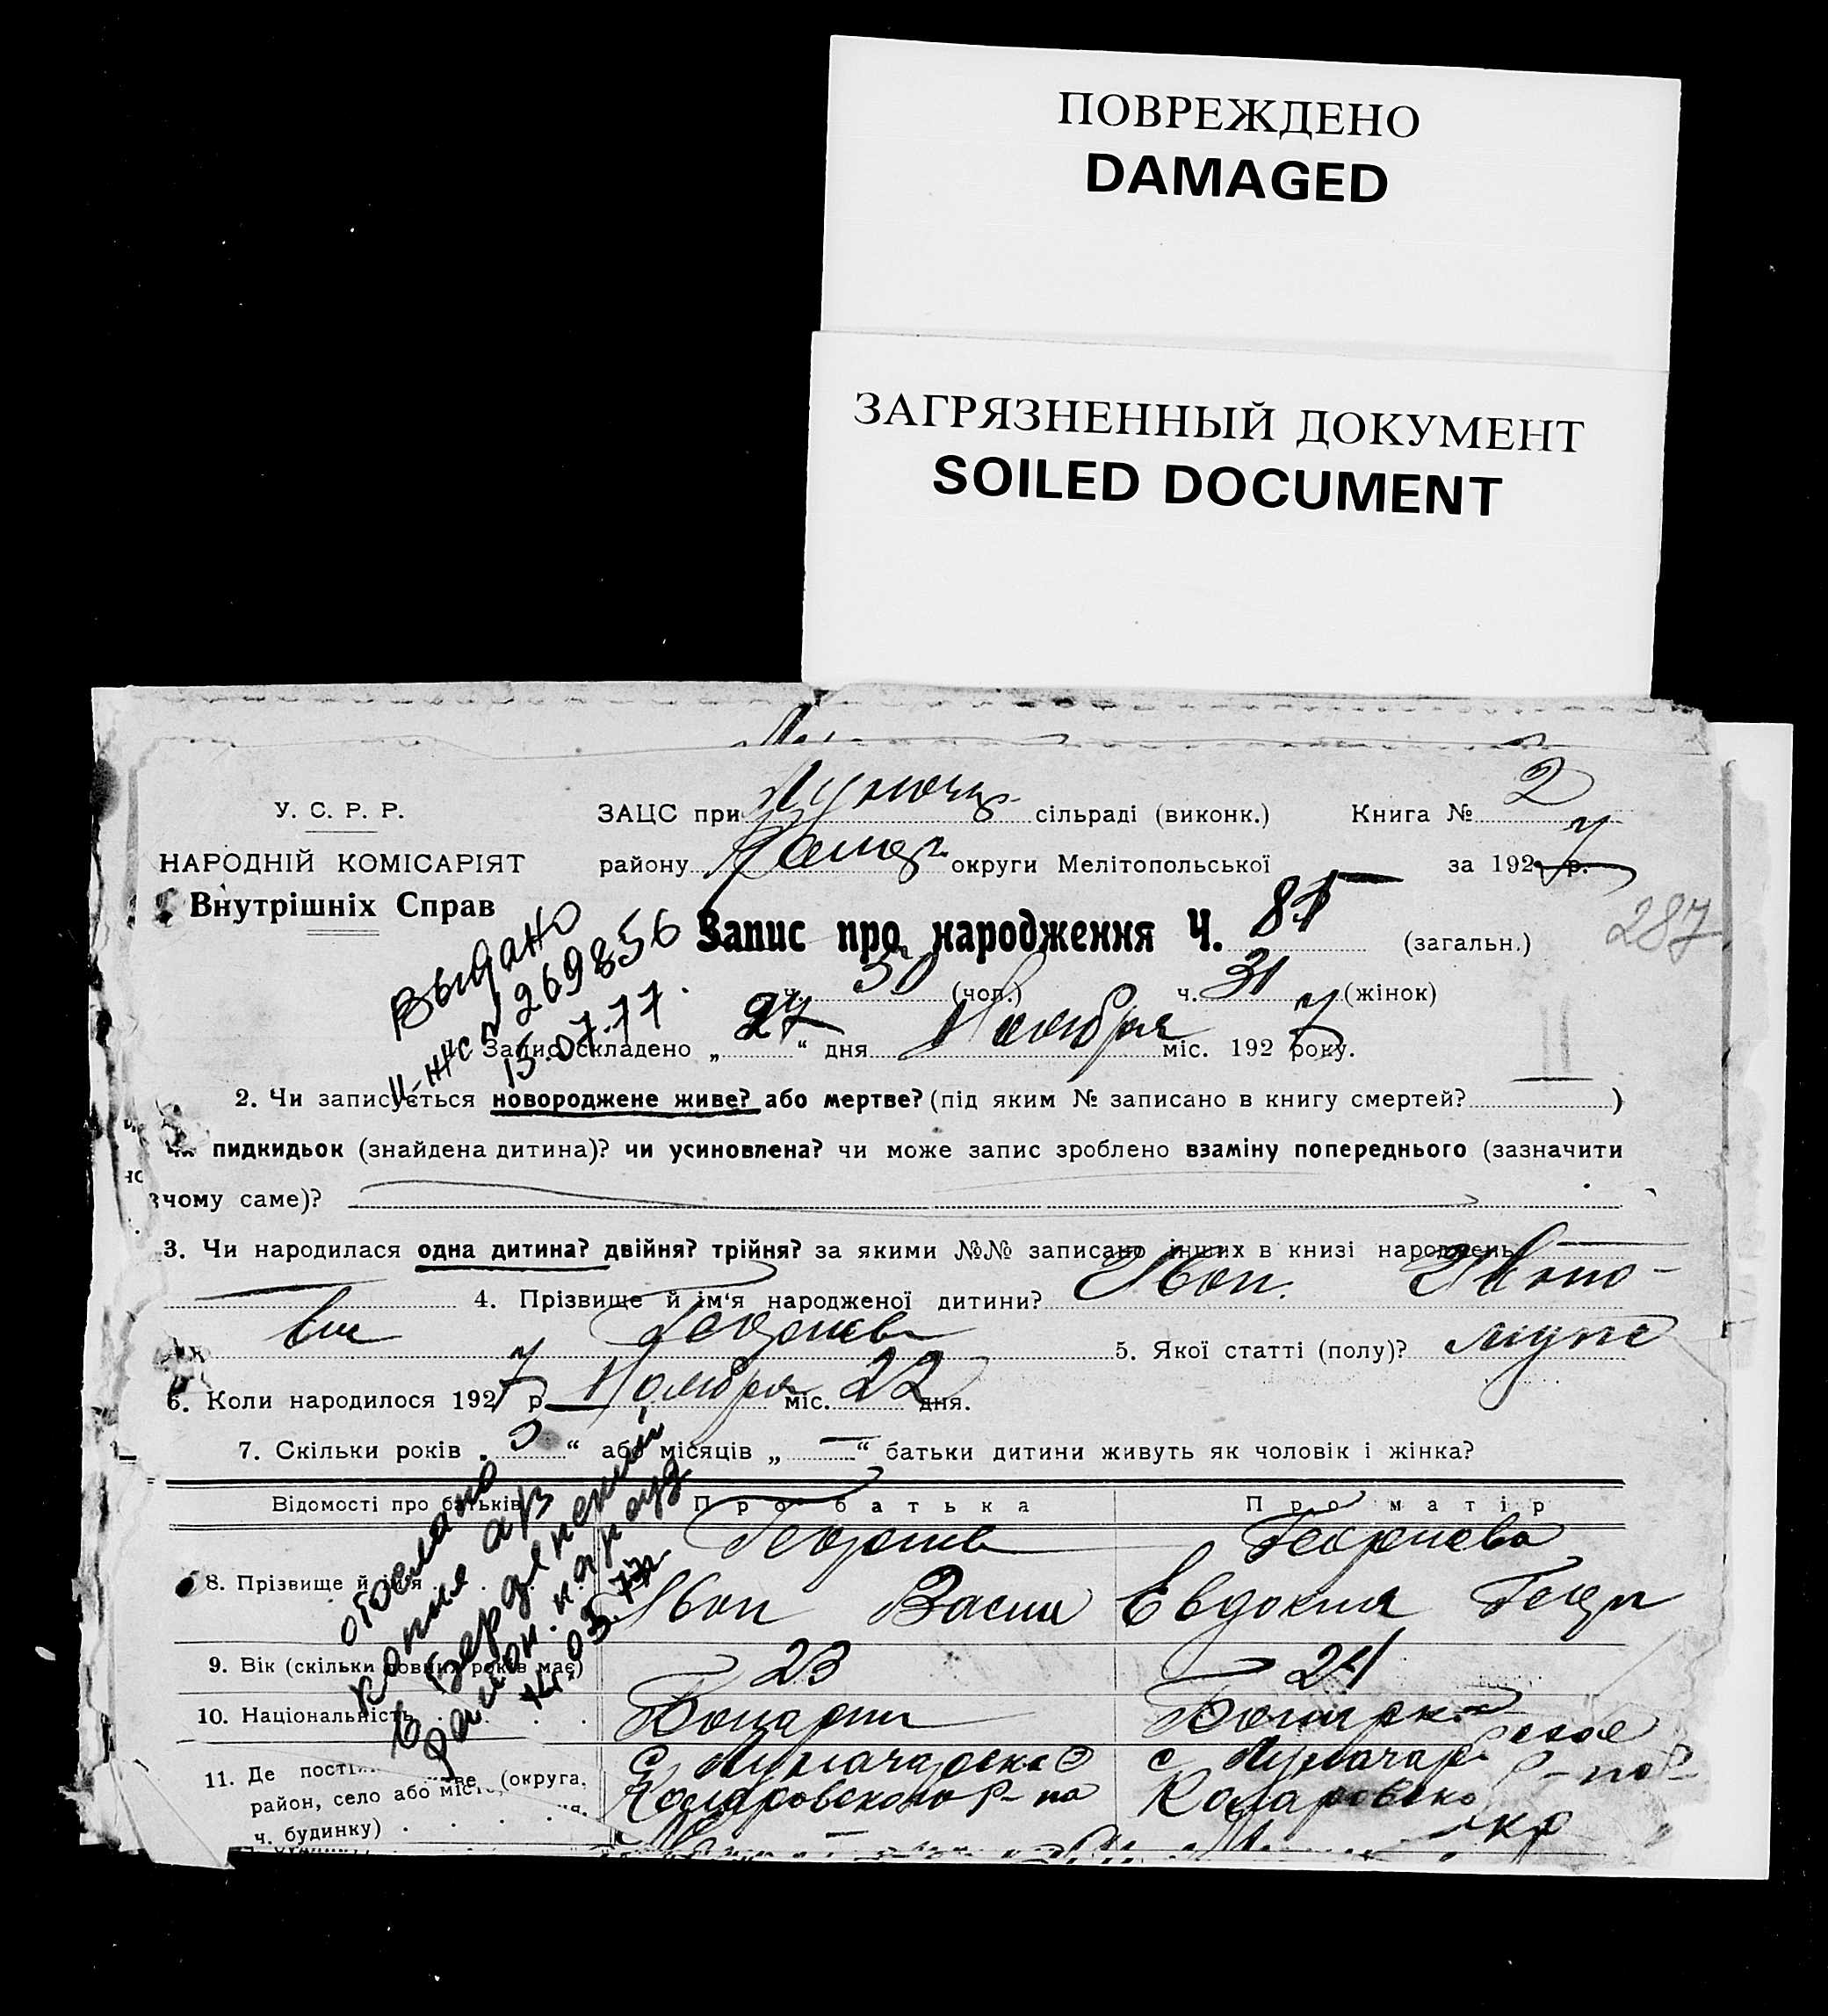 ПОВРЕЖДЕНО
DAMAGED
ЗАГРЯЗНЕННЫЙ ДОКУМЕНТ
SOILED DOCUMENT
У. С. Р. Р.
НАРОДНІЙ КОМІСАРІЯТ
Внутрішніх Справ
ЗАЦС при сільраді (виконк.) Книга № 2
району округи Мелітопольської за 1927 р.
Запис про народження Ч. 81 (загальн.)
287
ч. 50 (чол.) ч. 31 (жінок)
Выдано
269856
15.07.77.
Запис складено „27“ дня Ноября міс. 1927 року.
2. Чи записується новороджене живе? або мертве? (під яким № записано в книгу смертей? )
чи пидкидьок (знайдена дитина)? чи усиновлена? чи може запис зроблено взаміну попереднього (зазначити
чому саме)?
3. Чи народилася одна дитина? двійня? трійня? за якими №№ записано інших в книзі народжень
4. Прізвище й ім‘я народженої дитини? Ивон. Ивано-
вич Георгиев 5. Якої статті (полу)? мужс
6. Коли народилося 1927 р. Ноября міс. 22 дня.
7. Скільки років „3“ або місяців „—“ батьки дитини живуть як чоловік і жінка?
отослана
копия а/з
в Бердянский
район. н.а
03.77г.
Відомості про батьків Про батька Про матір
8. Прізвище й ім‘я Георгиев Георгиева
Ивон Васил Евдокия Георг
9. Вік (скільки повних років має) 23 21
10. Національність Болгарин Болгарка
11. Де постійно живе (округа, с с
район, село або місто, Коларовского р-на Коларовско р-на
ч. будинку) окр